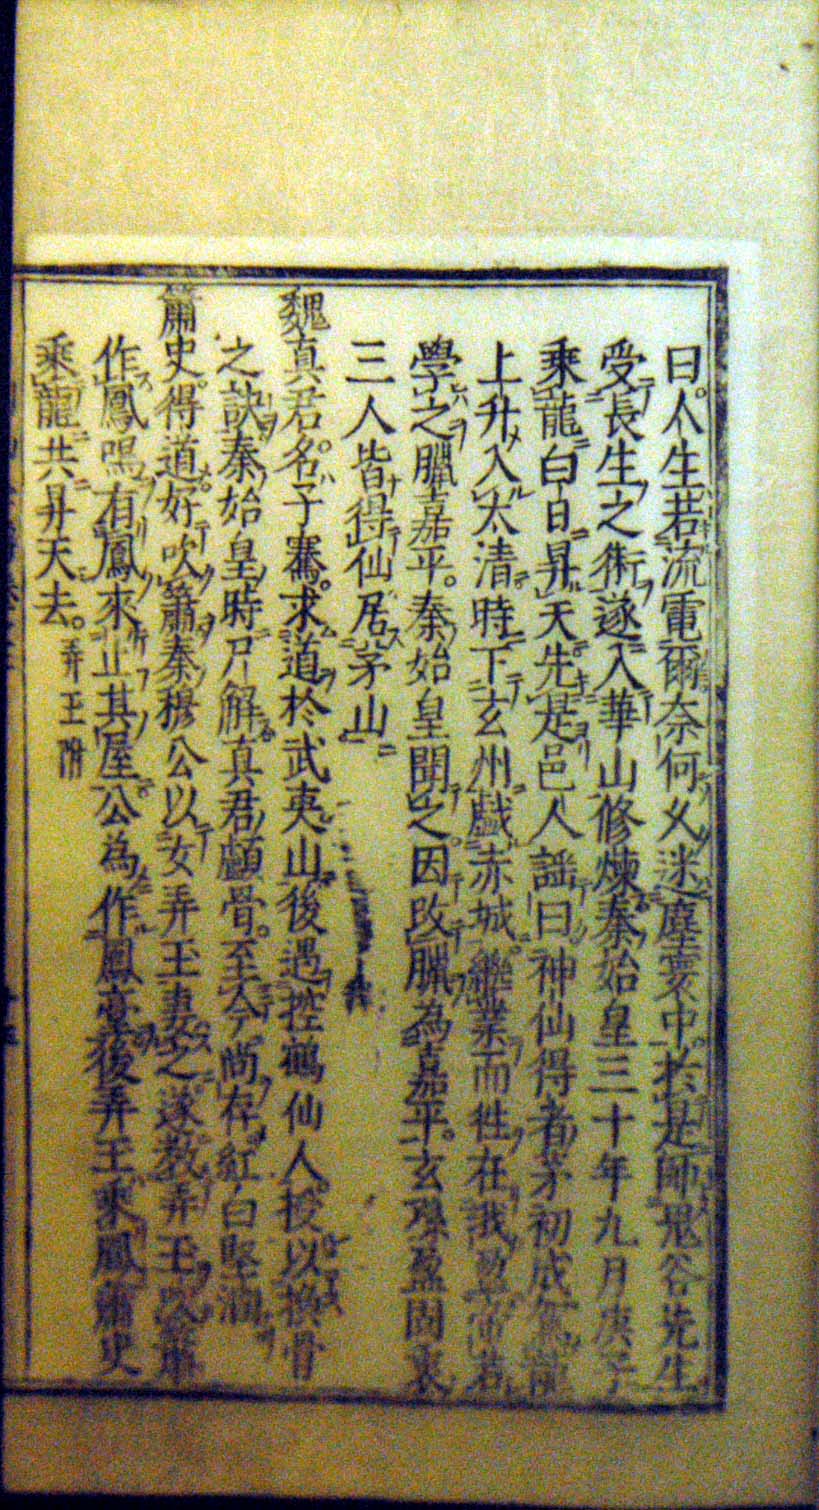 曰人生若流電爾奈何久迷塵寰中於是師鬼谷先生
受長生之術遂入華山修煉秦始皇三十年九月庚子
乘龍白日昇天先是邑人謡曰神仙得者茅初成駕龍
上升入太清時下玄州戲赤城繼業而徃在我盈帝若
學之臘嘉平秦始皇聞之因改臘為嘉平玄孫盈固衷
三人皆得仙居茅山
魏真君名子騫求道於武夷山後遇控鶴仙人授以換骨
之訣秦始皇時尸解真君顱骨至今尚存紅白堅潤
簫史得道好吹簫秦穆公以女弄玉妻之遂教弄玉吹簫
作鳳鳴有鳳來止其屋公為作鳳臺後弄玉乘鳳簫史
乘龍共昇天去弄玉附